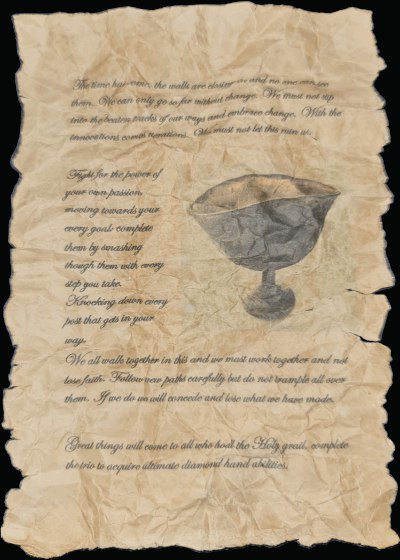 The time has come, the walls are closing in and no one can see
them. We can only go so far without change. We must not slip
into the beaten tracks of our ways and embrace change. With the
innovations comes iterations. We must not let this ruin us.
Fight for the power of
your own passion,
moving towards your
every goal, complete
them by smashing
though them with every
step you take.
Knocking down every
post that gets in your
way.
We all walk together in this and we must work together and not
lose faith. Follow new paths carefully but do not trample all over
them. If we do we will concede and lose what we have made.
Great things will come to all who hodl the Holy grail, complete
the trio to acquire ultimate diamond hand abilities.